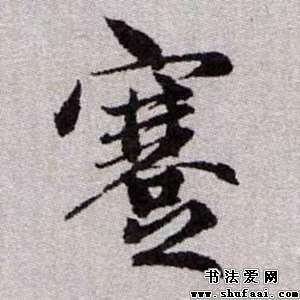 蹇
书法爱网
www.shufaai.com